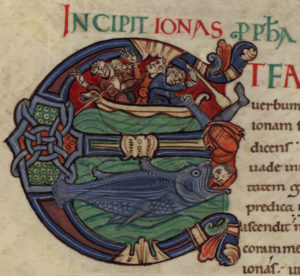 INCIPIT IONAS PPHA
ET FA
uerbum
ionam f
dicens
uade in
tatem g
predica i
ascendit m
coram me
ionas. ut